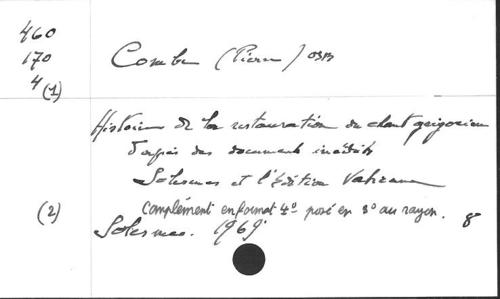 460
170
4 (1)
Combe (Pierre) OSB
Histoire de la restauration du chant grégorien
d'après des documents inédits
Solesmes et l'Édition Vaticane
(2) complément en format 4º posé en 8º au rayon.
Solesmes. 1969. 8